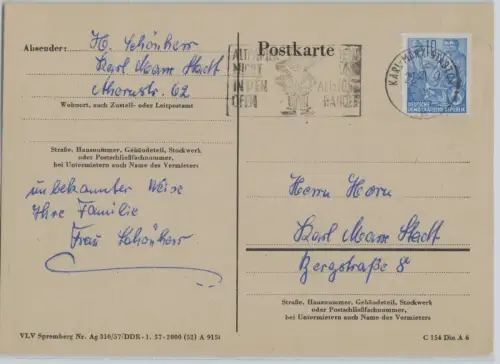 Absender: H. Schönherr
Karl Marx Stadt
straße 62
Wohnort, auch Zustell- oder Leitpostamt
Straße, Hausnummer, Gebäudeteil, Stockwerk
oder Postschließfachnummer,
bei Untermietern auch Name des Vermieters
unbekannter Weise
Ihre Familie
Frau Schönherr
VLV Spremberg Nr. Ag 310/57/DDR - 1. 57 - 2000 (52) A 9150
Postkarte
NICHT
IN DEN
OFEN
10
DEUTSCHE
DEMOKRATISCHE REPUBLIK
KARL-MARX-STADT
Herrn Horn
Karl Marx Stadt
Bergstraße 8
Straße, Hausnummer, Gebäudeteil, Stockwerk
oder Postschließfachnummer,
bei Untermietern auch Name des Vermieters
C 154 Din A 6